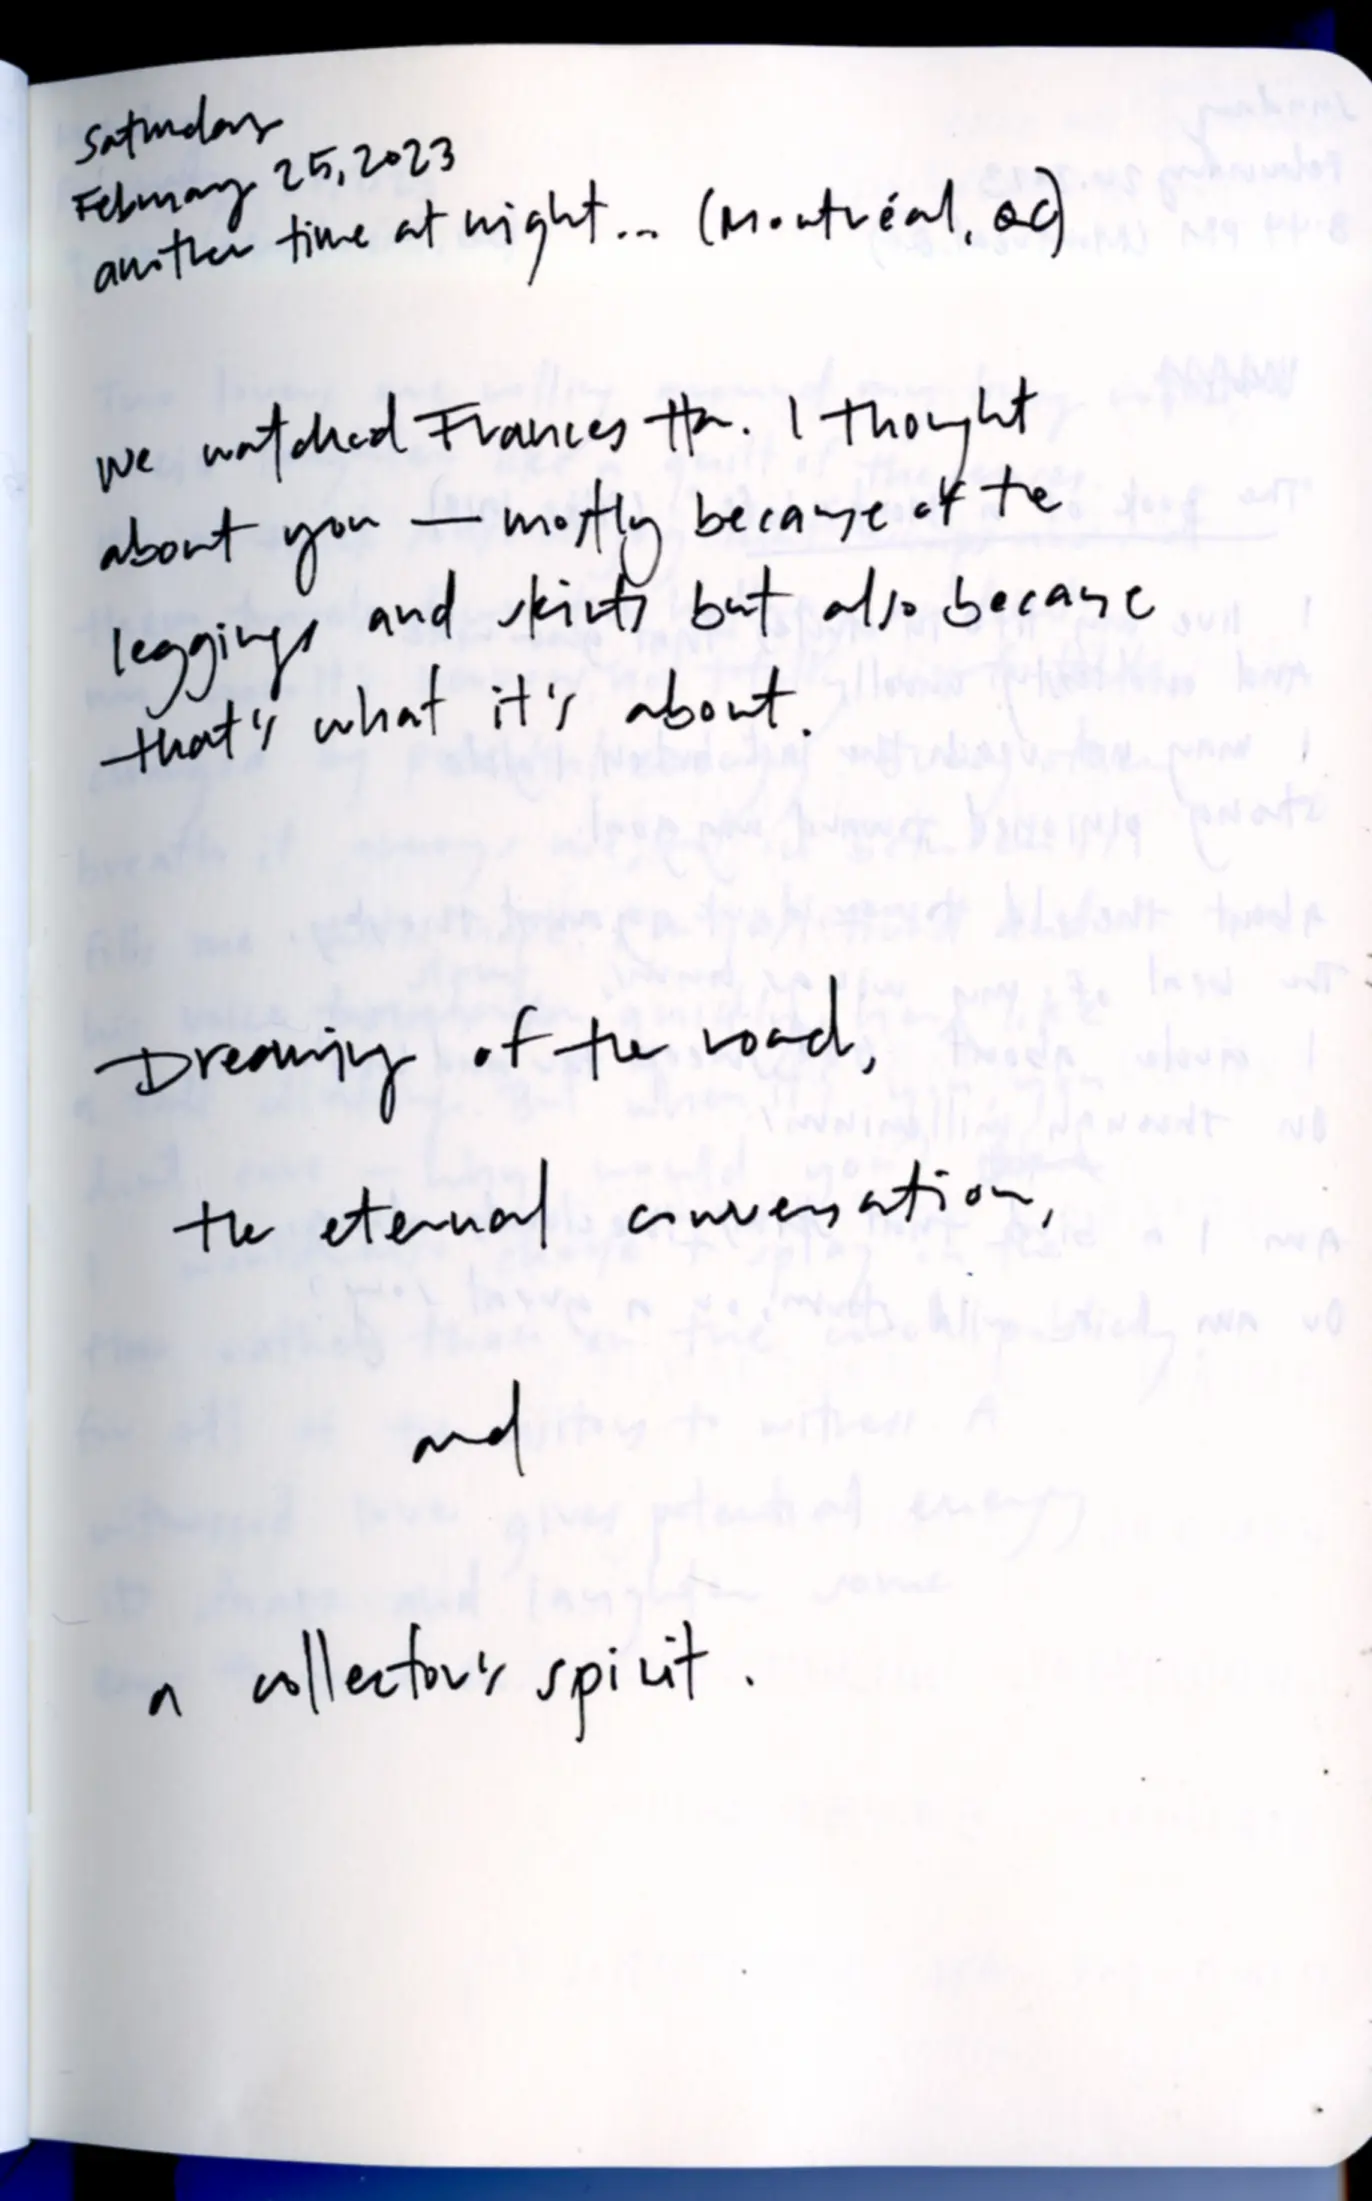 Saturday
February 25, 2023
another time at night... (Montréal, QC)
we watched Frances Ha. I thought
about you — mostly because of the
leggings and skirts but also because
that's what it's about.
Dreaming of the road,
the eternal conversation,
and
a collector's spirit.